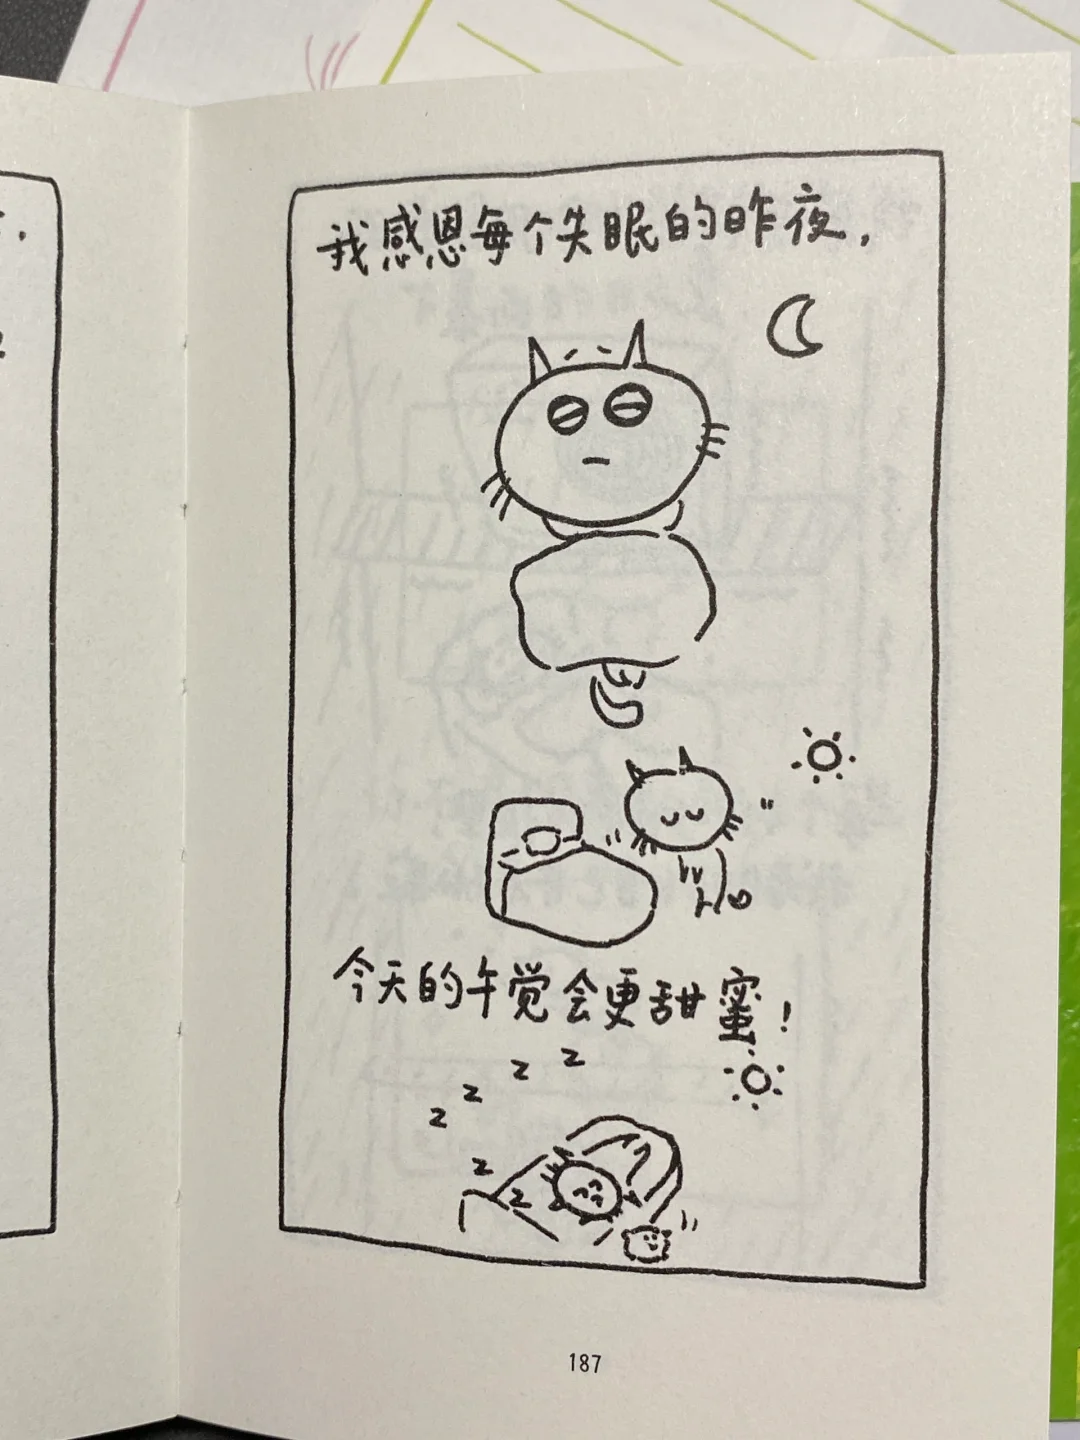 我感恩每个失眠的昨夜，
今天的午觉会更甜蜜！
z
z
z
z
z
z
187